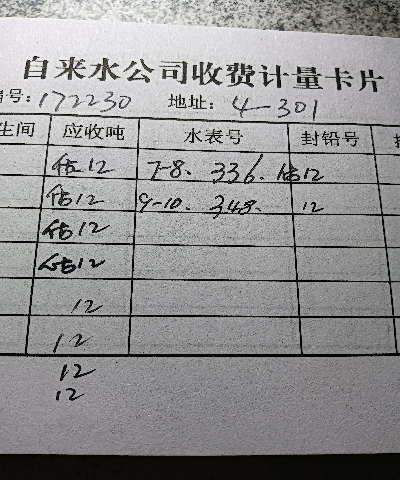 自来水公司收费计量卡片
编号:172230 地址: 4-301
生间 应收吨 水表号 封铅号
估12 7-8. 336. 估12
估12 9-10. 348. 12
估12
估12
12
12
12
12